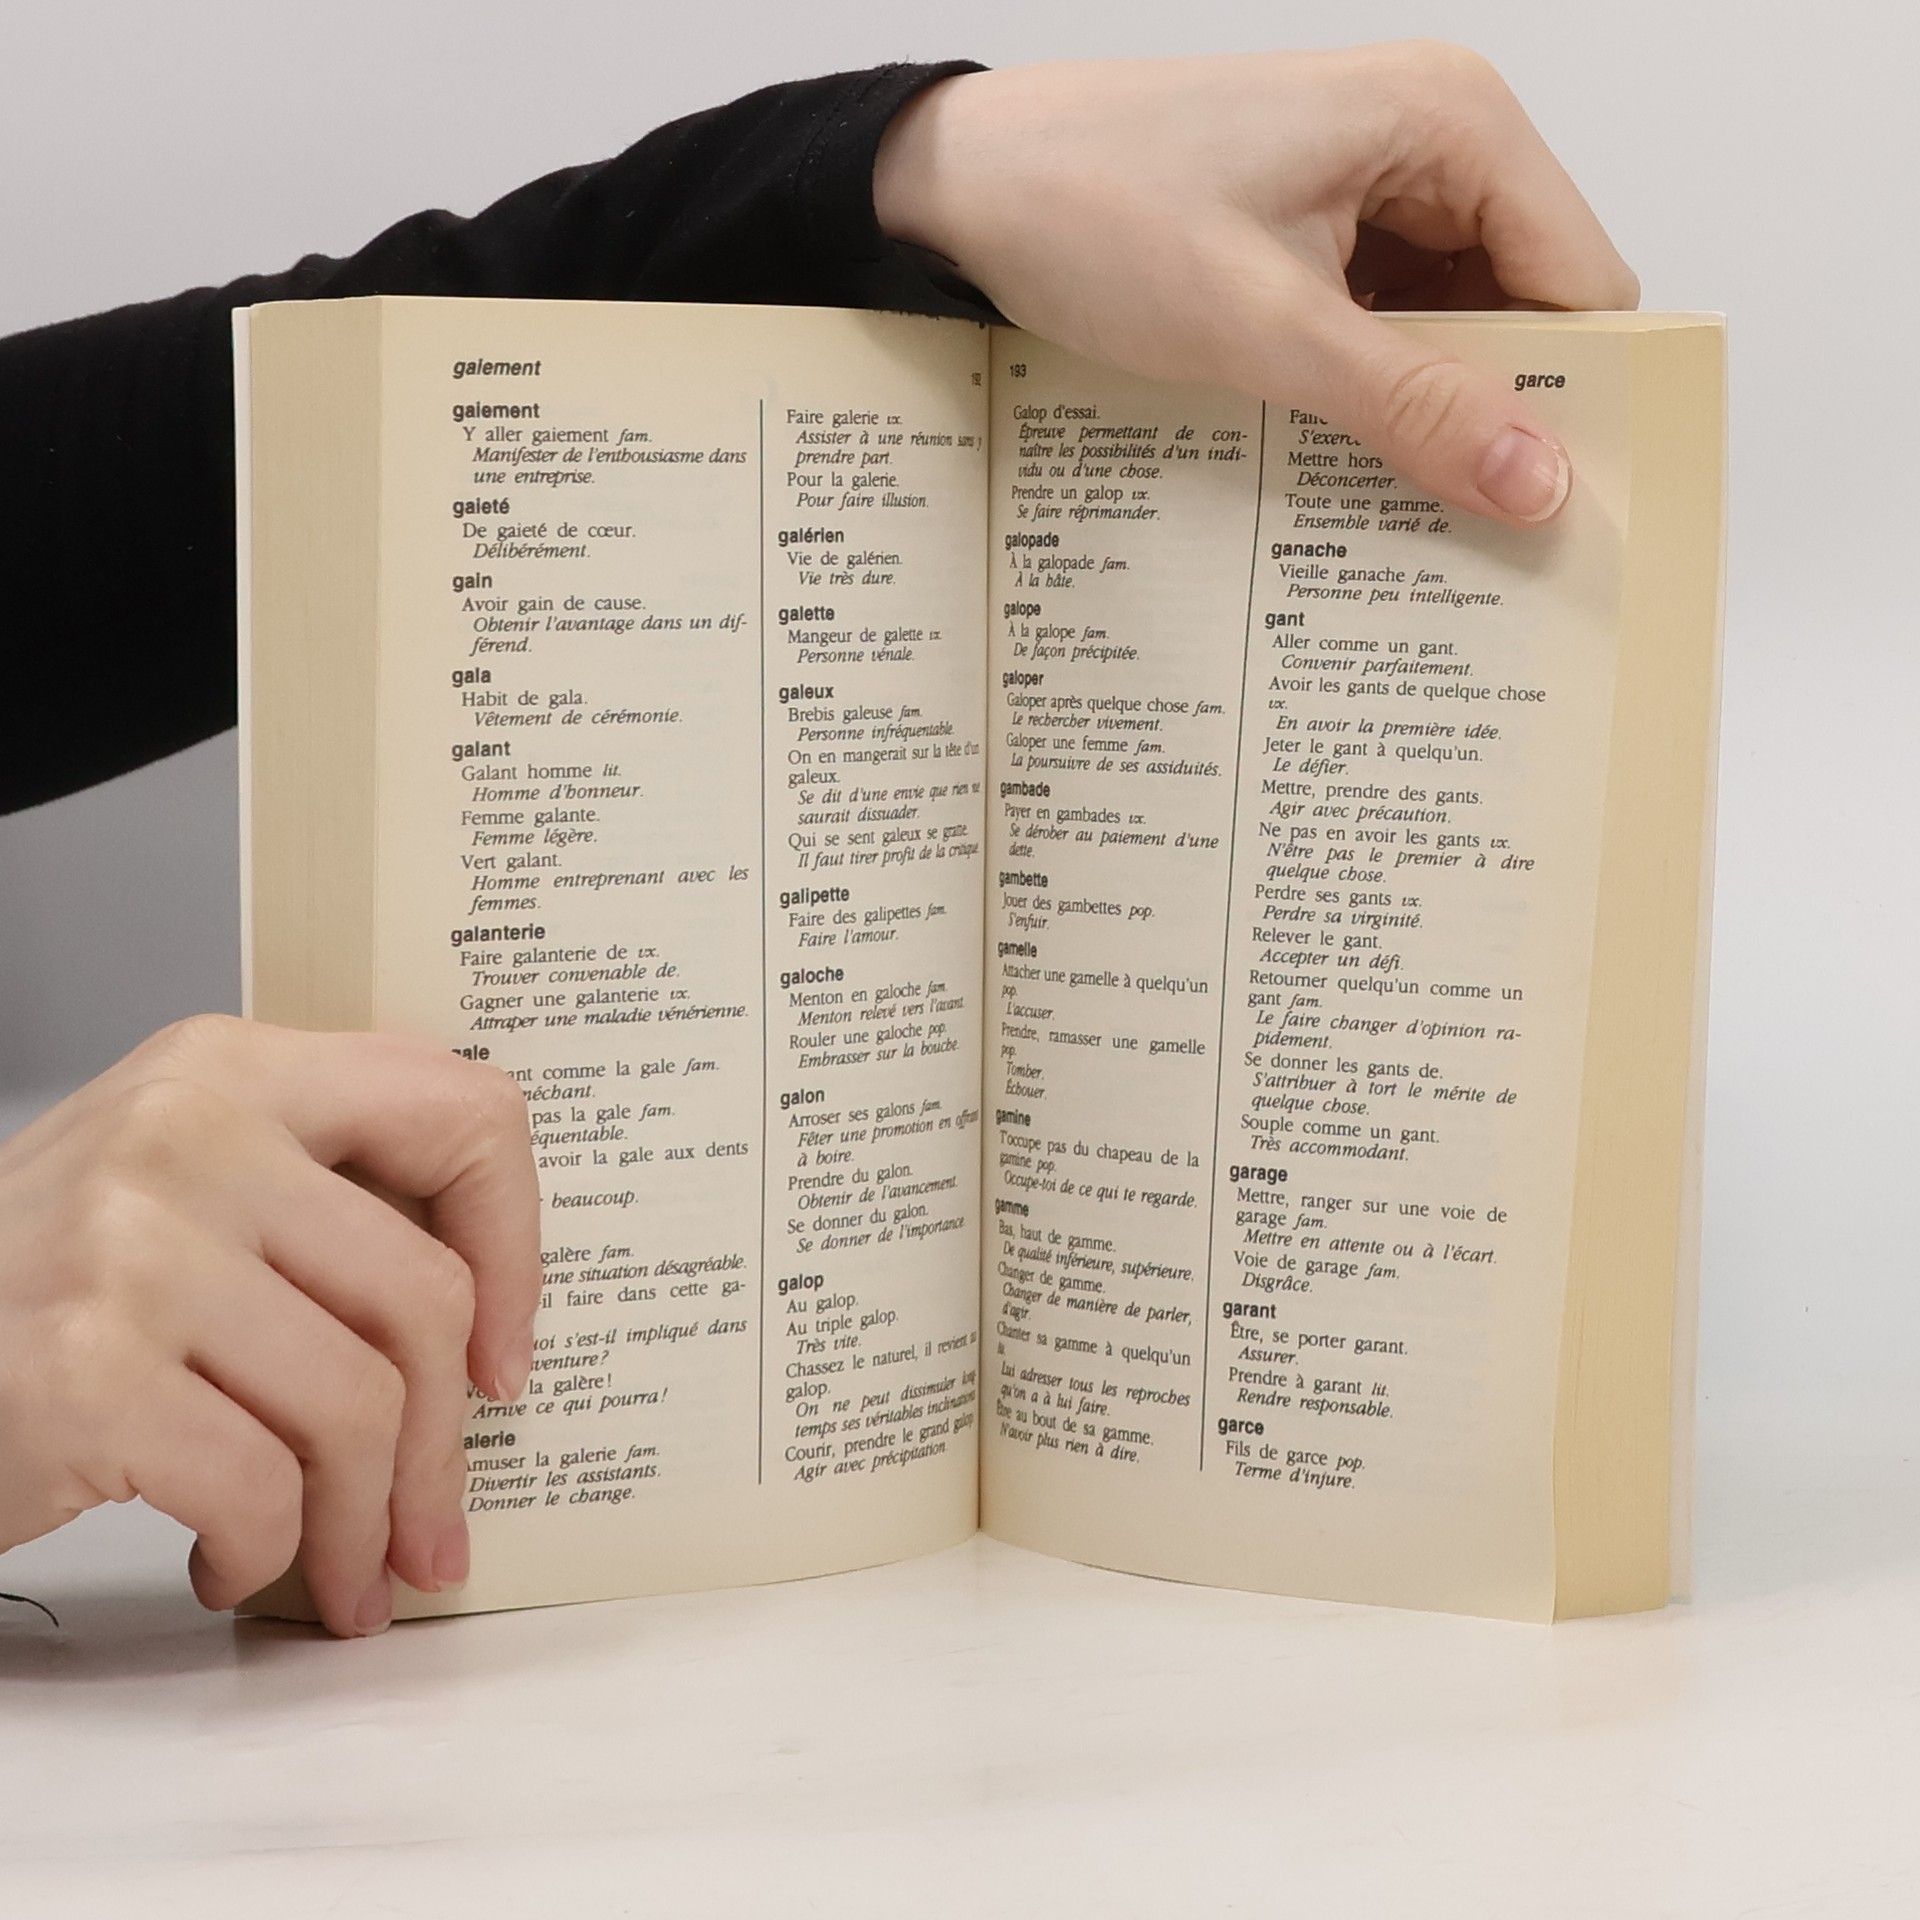 gaiement
192
gaiement
Y aller gaiement fam.
Manifester de l'enthousiasme dans
une entreprise.
gaieté
De gaieté de cœur.
Délibérément.
gain
Avoir gain de cause.
Obtenir l'avantage dans un dif-
férend.
gala
Habit de gala.
Vêtement de cérémonie.
galant
Galant homme lit.
Homme d'honneur.
Femme galante.
Femme légère.
Vert galant.
Homme entreprenant avec les
femmes.
galanterie
Faire galanterie de vx.
Trouver convenable de.
Gagner une galanterie vx.
Attraper une maladie vénérienne.
comme la gale fam.
pas la gale fam.
avoir la gale aux dents
beaucoup.
galère fam.
une situation désagréable.
faire dans cette ga-
s'est-il impliqué dans
la galère!
Arrive ce qui pourra!
la galerie fam.
Divertir les assistants.
Donner le change.
Faire galerie vx.
Assister à une réunion sans y
prendre part.
Pour la galerie.
Pour faire illusion.
galérien
Vie de galérien.
Vie très dure.
galette
Mangeur de galette vx.
Personne vénale.
galeux
Brebis galeuse fam.
Personne infréquentable.
On en mangerait sur la tête d'un
galeux.
Se dit d'une envie que rien ne
saurait dissuader.
Qui se sent galeux se gratte.
Il faut tirer profit de la critique.
galipette
Faire des galipettes fam.
Faire l'amour.
galoche
Menton en galoche fam.
Menton relevé vers l'avant.
Rouler une galoche pop.
Embrasser sur la bouche.
galon
Arroser ses galons fam.
Fêter une promotion en offrant
à boire.
Prendre du galon.
Obtenir de l'avancement.
Se donner du galon.
Se donner de l'importance.
galop
Au galop.
Au triple galop.
Très vite.
Chassez le naturel, il revient au
galop.
On ne peut dissimuler long-
temps ses véritables inclinations.
Courir, prendre le grand galop
Agir avec précipitation.
193
garce
Galop d'essai.
Épreuve permettant de con-
naître les possibilités d'un indi-
vidu ou d'une chose.
Prendre un galop vx.
Se faire réprimander.
galopade
À la galopade fam.
À la hâte.
galope
À la galope fam.
De façon précipitée.
galoper
Galoper après quelque chose fam.
Le rechercher vivement.
Galoper une femme fam.
La poursuivre de ses assiduités.
gambade
Payer en gambades vx.
Se dérober au paiement d'une
dette.
gambette
Jouer des gambettes pop.
S'enfuir.
gamelle
Attacher une gamelle à quelqu'un
pop.
L'accuser.
Prendre, ramasser une gamelle
pop.
Tomber.
Échouer.
gamine
T'occupe pas du chapeau de la
gamine pop.
Occupe-toi de ce qui te regarde.
gamme
Bas, haut de gamme.
De qualité inférieure, supérieure.
Changer de gamme.
Changer de manière de parler,
d'agir.
Chanter sa gamme à quelqu'un
lit.
Lui adresser tous les reproches
qu'on a à lui faire.
Être au bout de sa gamme.
N'avoir plus rien à dire.
Mettre hors
Déconcerter.
Toute une gamme.
Ensemble varié de.
ganache
Vieille ganache fam.
Personne peu intelligente.
gant
Aller comme un gant.
Convenir parfaitement.
Avoir les gants de quelque chose
vx.
En avoir la première idée.
Jeter le gant à quelqu'un.
Le défier.
Mettre, prendre des gants.
Agir avec précaution.
Ne pas en avoir les gants vx.
N'être pas le premier à dire
quelque chose.
Perdre ses gants vx.
Perdre sa virginité.
Relever le gant.
Accepter un défi.
Retourner quelqu'un comme un
gant fam.
Le faire changer d'opinion ra-
pidement.
Se donner les gants de.
S'attribuer à tort le mérite de
quelque chose.
Souple comme un gant.
Très accommodant.
garage
Mettre, ranger sur une voie de
garage fam.
Mettre en attente ou à l'écart.
Voie de garage fam.
Disgrâce.
garant
Être, se porter garant.
Assurer.
Prendre à garant lit.
Rendre responsable.
garce
Fils de garce pop.
Terme d'injure.